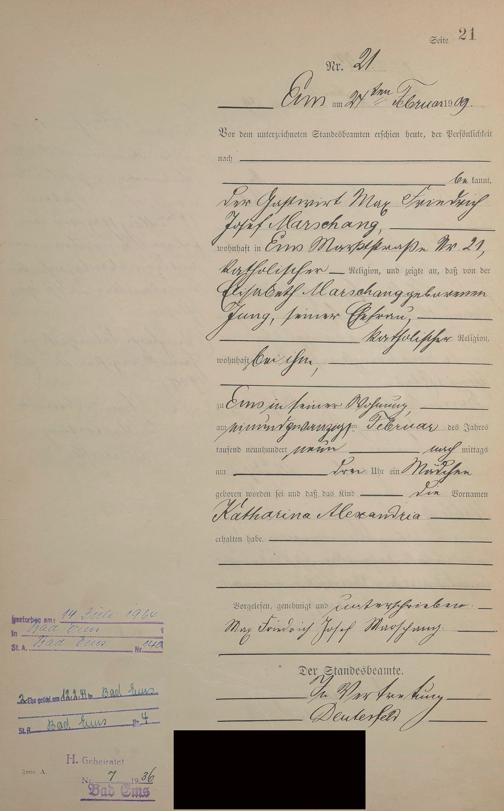 Seite 21
Nr. 21
Ems am 27ten Februar 1909.
Vor dem unterzeichneten Standesbeamten erschien heute, der Persönlichkeit
nach
bekannt,
der Gastwirt Max Friedrich
Josef Marschang,
wohnhaft in Ems Marktstraße Nr. 21,
katholischer Religion, und zeigte an, daß von der
Elisabeth Marschang geborenen
Jung, seiner Ehefrau,
katholischer Religion,
wohnhaft bei ihm,
zu Ems in seiner Wohnung,
am einundzwanzigst. Februar des Jahres
tausend neunhundert neun nach mittags
um drei Uhr ein Mädchen
geboren worden sei und daß das Kind die Vornamen
Katharina Alexandria
erhalten habe.
Vorgelesen, genehmigt und unterschrieben
Max Friedrich Josef Marschang.
Der Standesbeamte.
In Vertretung
Deutesfeld
Gestorben am: 14 Juli 1960
in Bad Ems
St. A. Bad Ems Nr. 140
2. Ehe geschl. am 12.8.39 in Bad Ems
St. A. Bad Ems Nr. 4
H. Geheiratet
Nr. 7 1936
Bad Ems